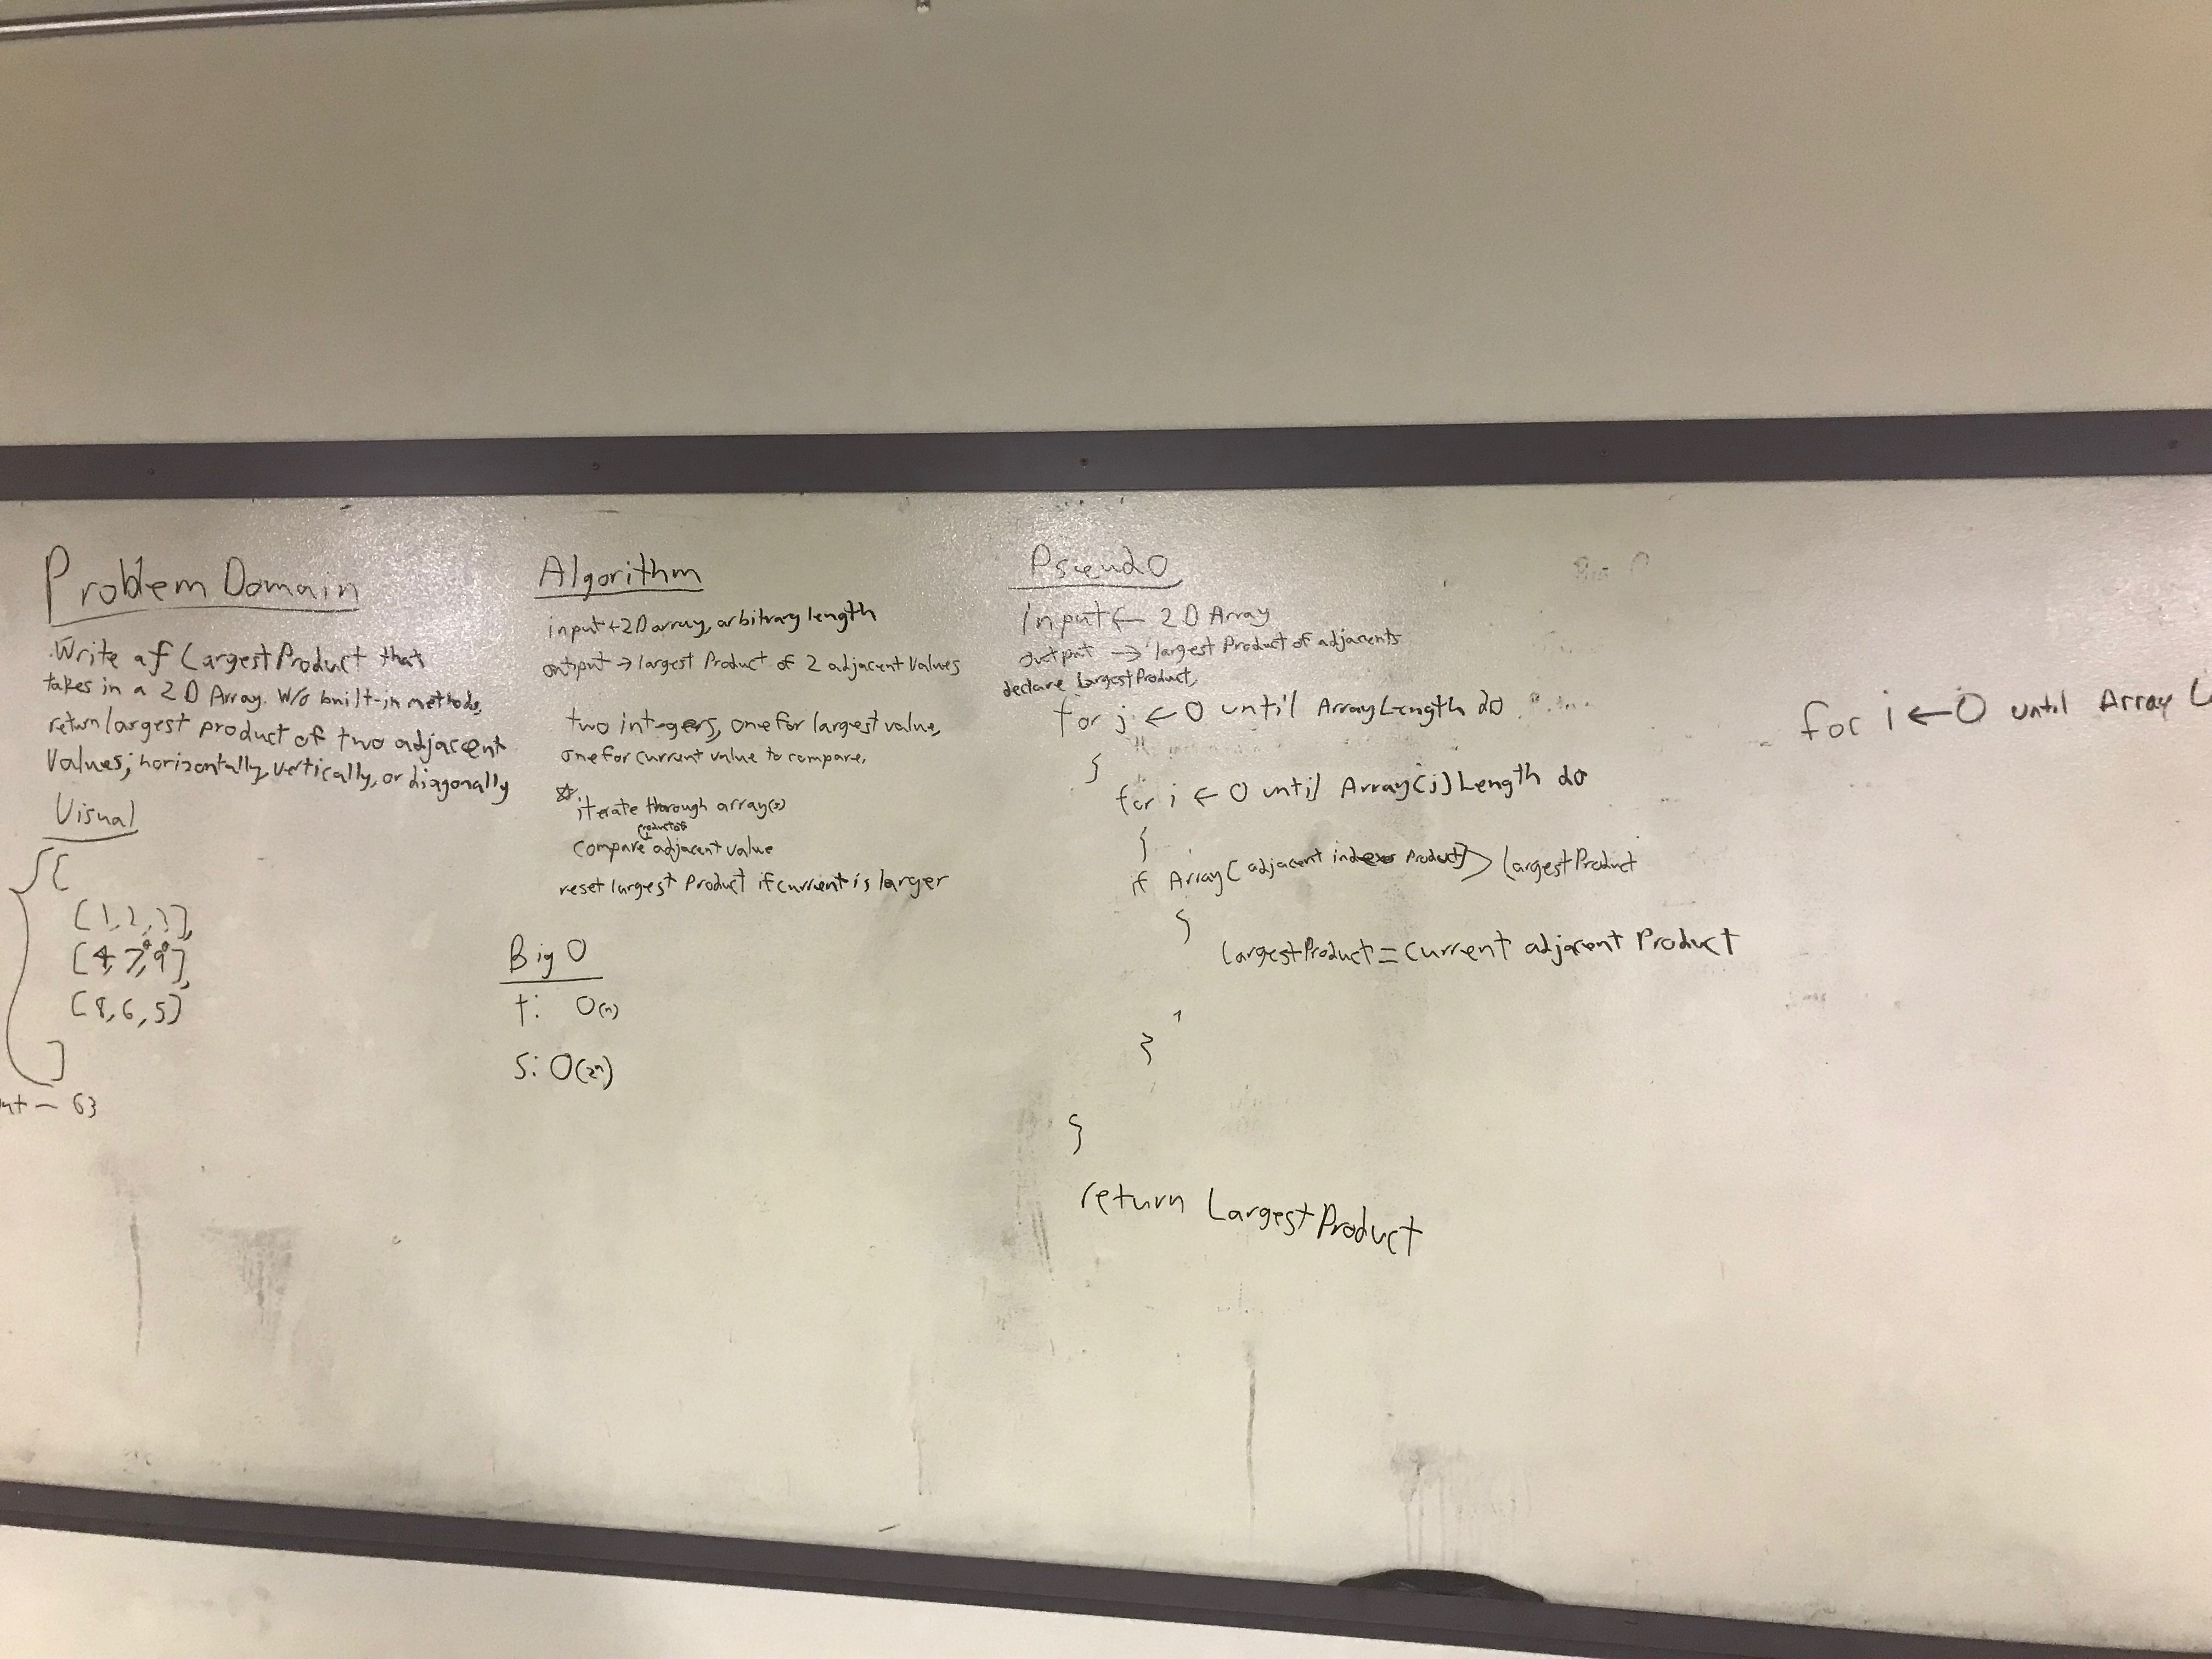 Problem Domain
Write a f LargestProduct that
takes in a 2D Array. W/o built-in methods,
return largest product of two adjacent
values; horizontally, vertically, or diagonally
Visual
[
[1,2,3],
[4,7,9],
[8,6,5]
]
63
Algorithm
input ← 2D array, arbitrary length
output → largest Product of 2 adjacent Values
two integers, one for largest value,
one for current value to compare.
☆ iterate through array(s)
products of
compare adjacent value
reset largest Product if current is larger
Big O
t: O(n)
S: O(2n)
Pseudo
input ← 2D Array
output → largest Product of adjacents
declare LargestProduct,
for j ← 0 until ArrayLength do
{
for i ← 0 until Array[j] Length do
{
if Array[adjacent index Product] > largestProduct
{
largestProduct = current adjacent Product
}
}
return LargestProduct
for i ← 0 until Array L